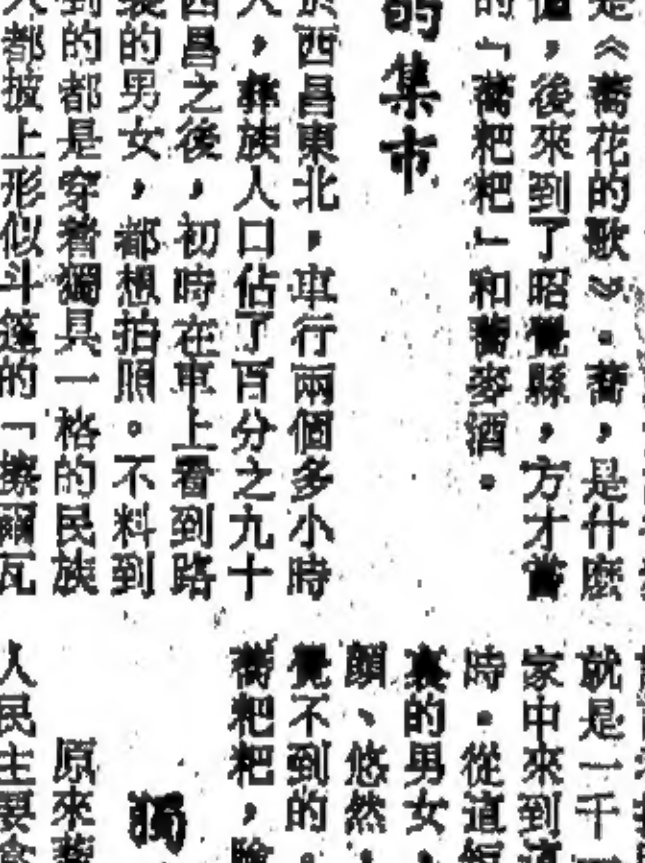 是《蕎花的歌》。蕎,是什麼
值,後來到了昭覺縣,方才嘗
的「蕎粑粑」和蕎麥酒。
的集市
於西昌東北,車行兩個多小時
人,彝族人口佔了百分之九十
西昌之後,初時在車上看到路
裝的男女,都想拍照。不料到
到的都是穿着獨具一格的民族
人都披上形似斗篷的「擦爾瓦
就是一千
家中來到這
時。從這短
裏的男女,
顏、悠然,
覺不到的。
蕎粑粑,
獨
原來蕎
人民主要食